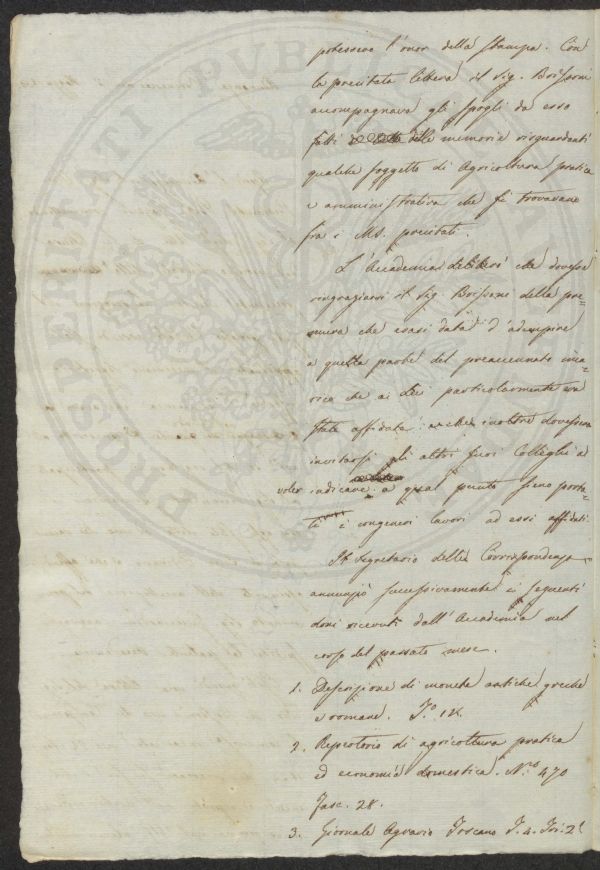 potessero l'onor della stampa. Con
la precitata lettera il Sig. Brissoni
accompagnava gli spogli da esso
fatti delle memorie risguardanti
qualche soggetto di Agricoltura pratica
e amministrativa che si trovavano
fra i MS. precitati.
L'Accademia deliberò che dovesse
ringraziarsi il Sig. Brissoni della pre=
mura che erasi data d'adempire
a questa parte del preaccennato inca=
rico che a lui particolarmente era
stato affidato: anche inoltre dovessero
invitarsi gli altri suoi Colleghi a
voler indicare a qual punto sieno porta=
ti i congeneri lavori ad essi affidati.
Il Segretario delle Corrispondenze
annunziò successivamente i seguenti
doni ricevuti dall'Accademia nel
corso del passato mese.
1. Descrizione di monete antiche greche
e romane. T.o IX.
2. Repertorio di agricoltura pratica
ed economia domestica. N.o 470
Fasc. 28.
3. Giornale Agrario Toscano T. 4. Tri. 2.
PROSPERITATI PVBLICAE